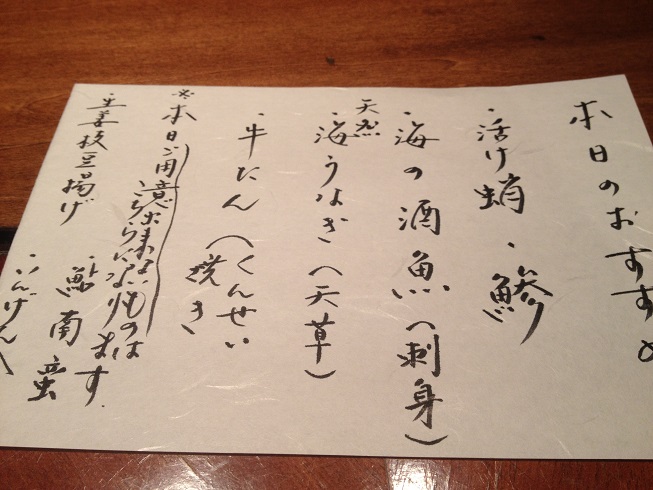 本日のおすすめ
・活け蛸 ・鯵
・海の酒魚(刺身)
天然
・海うなぎ(天草)
・牛たん(くんせい
焼き
※本日ご用意出来ないものは
こちらになります
・生姜枝豆揚げ
・鮎南蛮
・いんげん